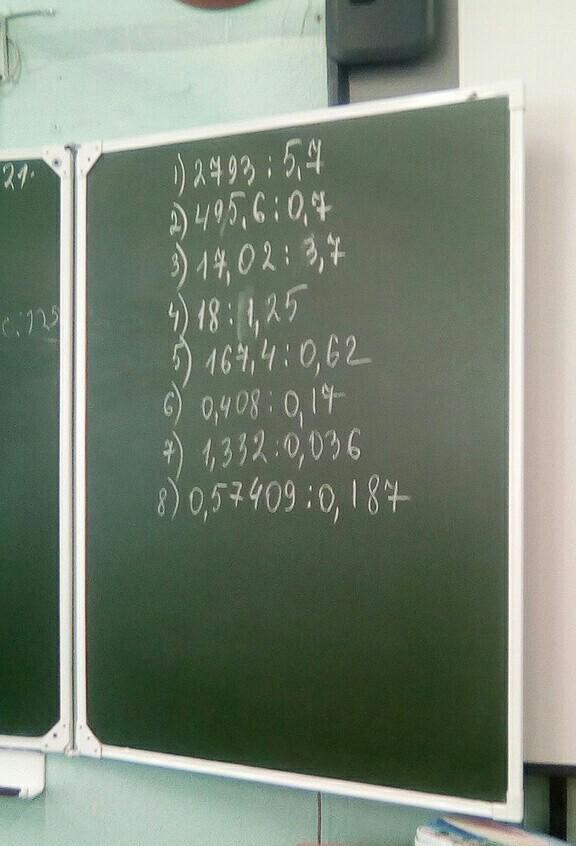 21.
с. 125
1) 2793 : 5,7
2) 495,6 : 0,7
3) 17,02 : 3,7
4) 18 : 1,25
5) 167,4 : 0,62
6) 0,408 : 0,17
7) 1,332 : 0,036
8) 0,57409 : 0,187